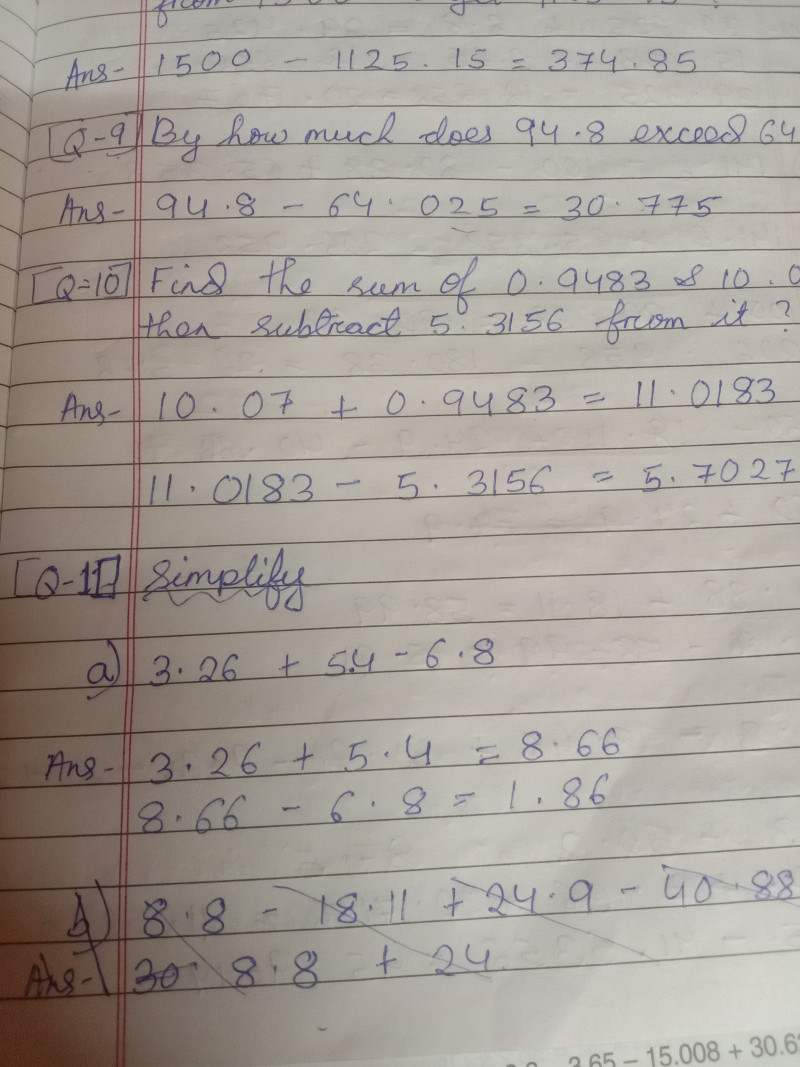 Ans- 1500 - 1125.15 = 374.85
[Q-9] By how much does 94.8 exceed 64
Ans- 94.8 - 64.025 = 30.775
[Q=10] Find the sum of 0.9483 & 10.0
then subtract 5.3156 from it?
Ans- 10.07 + 0.9483 = 11.0183
11.0183 - 5.3156 = 5.7027
[Q-11] Simplify
a) 3.26 + 5.4 - 6.8
Ans- 3.26 + 5.4 = 8.66
8.66 - 6.8 = 1.86
b) 8.8 - 18.11 + 24.9 - 40.88
Ans- 30. 8.8 + 24
3.65 – 15.008 + 30.6